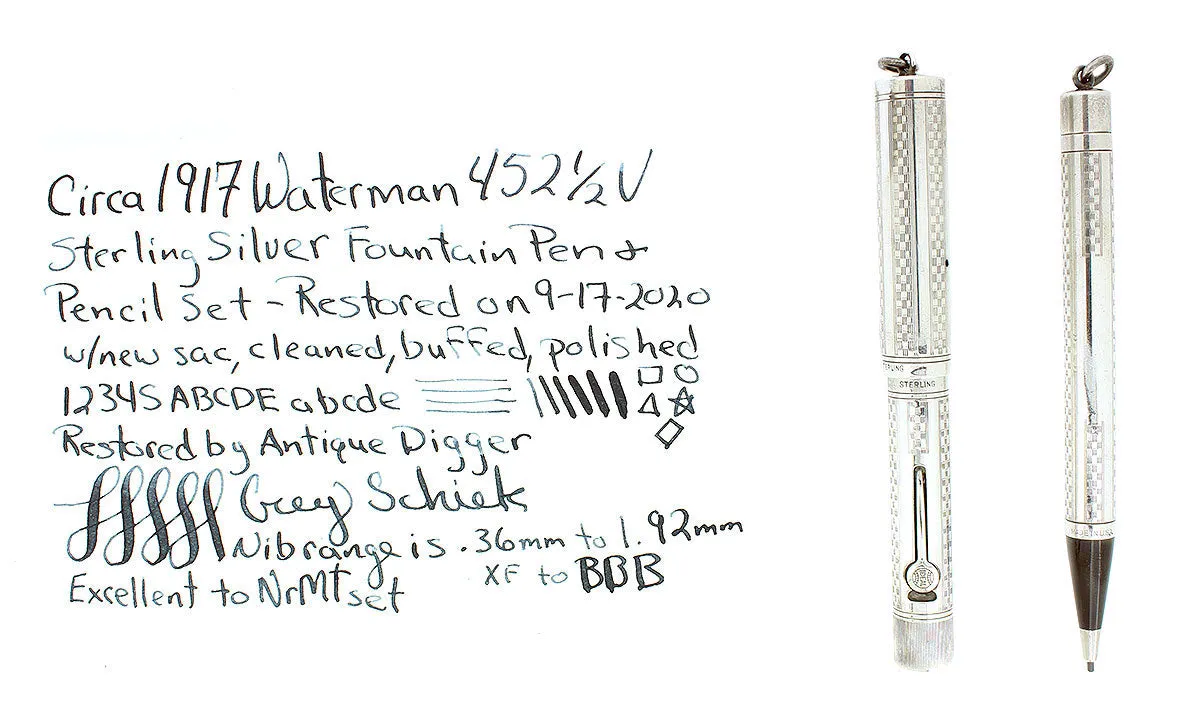 Circa 1917 Waterman 452½ V
Sterling Silver Fountain Pen +
Pencil Set - Restored on 9-17-2020
w/new sac, cleaned, buffed, polished
12345 ABCDE abcde
Restored by Antique Digger
Nib range is .36mm to 1.92mm
XF to BBB
Excellent to NrMt set
STERLING
STERLING